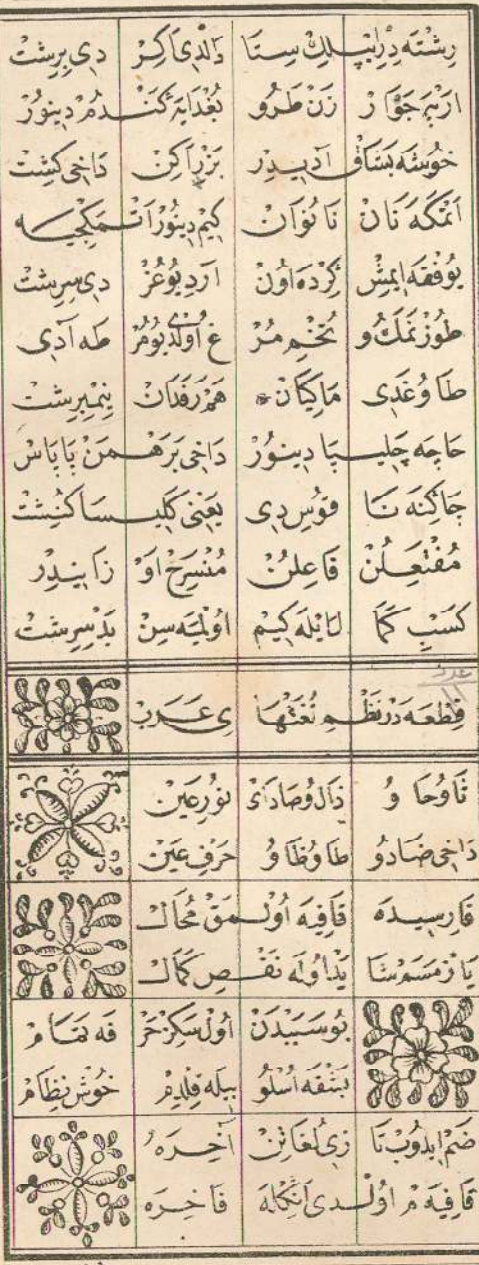 رشته در ایپلك ستا دالدی اكر دی برشت
ارپه جوار زن طرو بغدایه كندم دینور
خوشه بشاق آدیدر بزراكن داخی كشت
اتمكه نان نانوان كیم دینور اتمكجیه
یوفقه ایمش كرده اون ارد یوغز دی سرشت
طوز نمك و تخم مرغ اولدی یومرطه آدی
طاوغدی ماكیان هم رفدان نیمبرشت
حاچه چلیپا دینور داخی برهمن پاپاس
چاكنه نا قوس دی یعنی كلیسا كنشت
مفتعلن فاعلن منسرح اوزایندر
كسب كمال ایله كیم اولمیه سن بدسرشت
قطعه در نظم لغتهای عرب
ثا و حا و ذال و صاد ای نور عین
داخی ضاد و طا و ظا و حرف عین
فارسیده قافیه اولمق محال
یازمسم شایدا وله نقص كمال
بوسببدن اول سكز حرفه تمام
بشقه اسلوبیله قلدم خوش نظام
ضم ایدوب تازی لغاتن آخره
قافیه م اولدی انكله فاخره